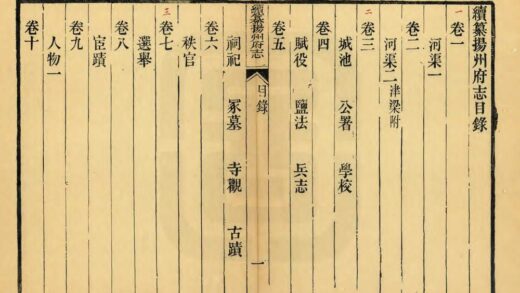 續纂揚州府志目錄
一
卷一
河渠一
卷二
河渠二津梁附
二
卷三
城池 公署 學校
卷四
賦役 鹽法 兵志
卷五
祠祀 冢墓 寺觀 古蹟
續纂揚州府志
目錄
一
卷六
秩官
三
卷七
選舉
卷八
宦蹟
卷九
人物一
卷十